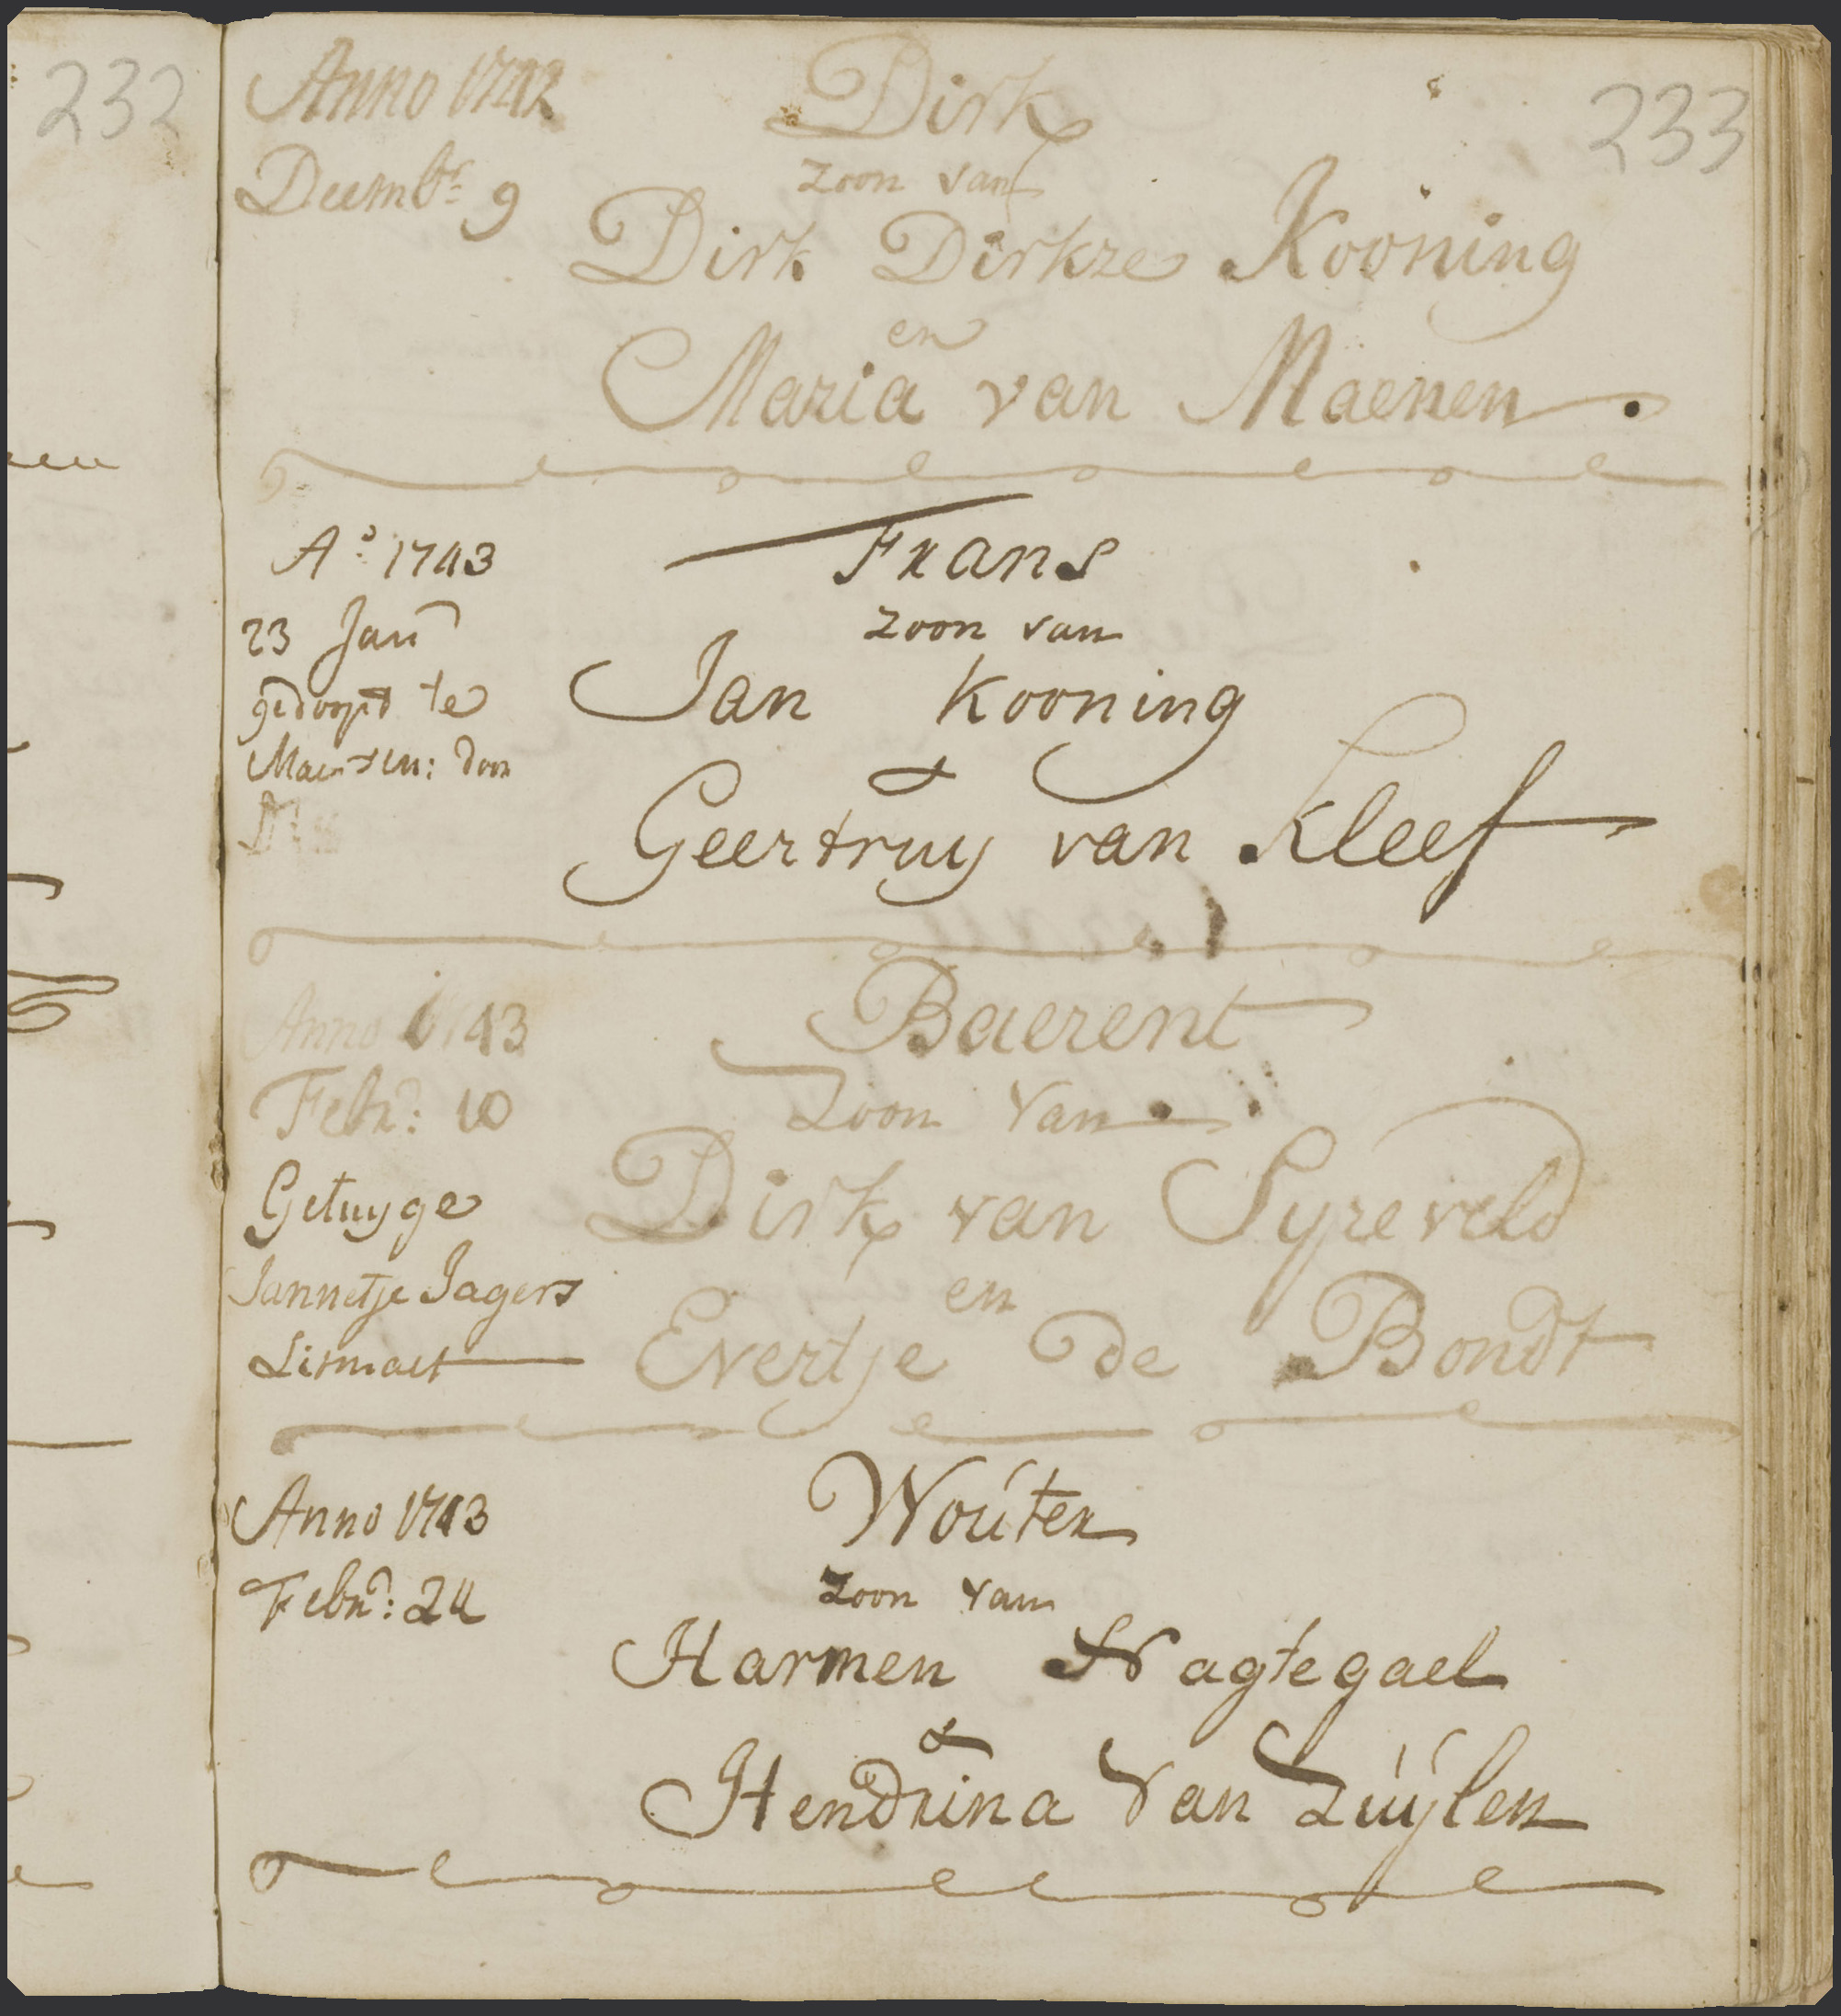 232
233
Anno 1742
Decmbr 9
Dirk
zoon van
Dirk Dirkze Kooning
en
Maria van Maenen
Ao: 1743
23 Jan
gedoopt te
Maersen: door
Frans
zoon van
Jan Kooning
&
Geertruy van Kleef
Anno 1743
Febr: 10
Getuyge
Jannetje Jagers
Baerent
Zoon van
Dirk van Syreveld
en
Evertje de Bondt
Anno 1743
Febr: 24
Wouter
zoon van
Harmen Nagtegael
&
Hendrina van Zuylen